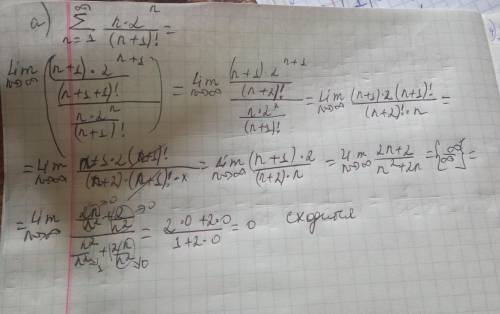 а) ∞ ∑ n=1 n·2^n / (n+1)! =
lim n→∞ ( ((n+1)·2^(n+1) / (n+1+1)!) / (n·2^n / (n+1)!) ) = lim n→∞ ((n+1)·2^(n+1) / (n+2)!) / (n·2^n / (n+1)!) = lim n→∞ (n+1)·2(n+1)! / (n+2)!·n =
= lim n→∞ n+1·2(n+1)! / (n+2)·(n+1)!·n = lim n→∞ (n+1)·2 / (n+2)·n = lim n→∞ 2n+2 / n²+2n = [∞/∞] =
= lim n→∞ (2n/n² →0 + 2/n² →0) / (n²/n² =1 + 2n/n² →0) = 2·0+2·0 / 1+2·0 = 0 сходится